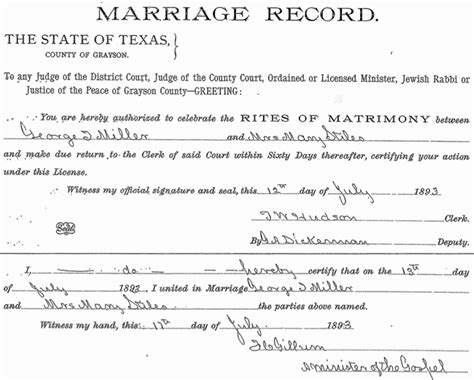 MARRIAGE RECORD.
THE STATE OF TEXAS,
COUNTY OF GRAYSON.
To any Judge of the District Court, Judge of the County Court, Ordained or Licensed Minister, Jewish Rabbi or
Justice of the Peace of Grayson County—GREETING:
You are hereby authorized to celebrate the RITES OF MATRIMONY between
George T Miller and Mrs Mary Stiles
and make due return to the Clerk of said Court within Sixty Days thereafter, certifying your action
under this License.
Witness my official signature and seal, this 12th day of July 1893
J W Hudson Clerk.
Seal
By G A Dickerman Deputy.
I, do hereby certify that on the 13th day
of July 1893 I united in Marriage George T Miller
and Mrs Mary Stiles the parties above named.
Witness my hand, this 17th day of July 1893
Gillum
Minister of the Gospel